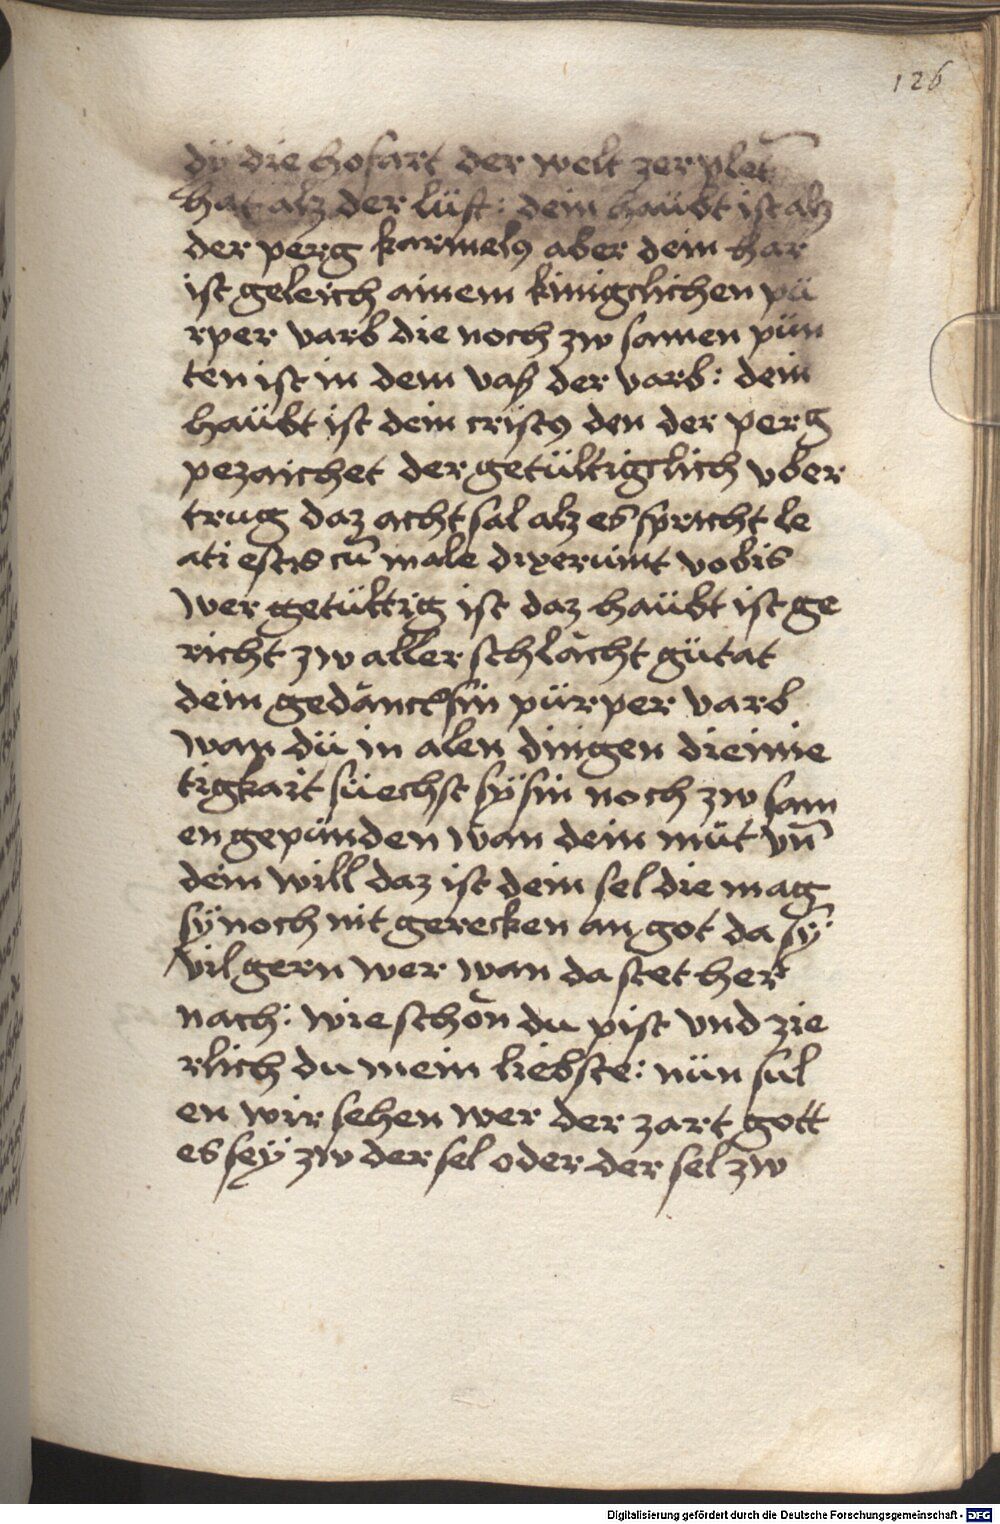 126
dÿ die hofart der welt zer plet
hat alz der lüft: dein haübt ist alz
der perg karmelꝯ aber dein har
ist geleich ainem kinigclichen pü
rper varb die noch zw samen pün
ten ist in dem vaß der varb: dein
haübt ist dein cristꝯ den der perg
pezaichet der getültigclich vber
trug daz acht sal alz es spricht be
ati estis cū male dixerunt vobis
wer getültig ist daz haübt ist ge
richt zw aller schlacht gütat
dein gedänck sin pürper varb
wan dü in alen dingen die
tigkait süechst sÿ sin noch zw sam
en gepünden wan dein müt vn̄
dein will daz ist dein sel die mag
sÿ noch nit gerecken an got da sÿ
vil gern wer wan da stet her
nach: wie schön du pist vnd zie
rlich du mein liebste: nün sül
en wir sehen wer der zart gott
es seÿ zw der sel oder der sel zw
Digitalisierung gefördert durch die Deutsche Forschungsgemeinschaft - DFG